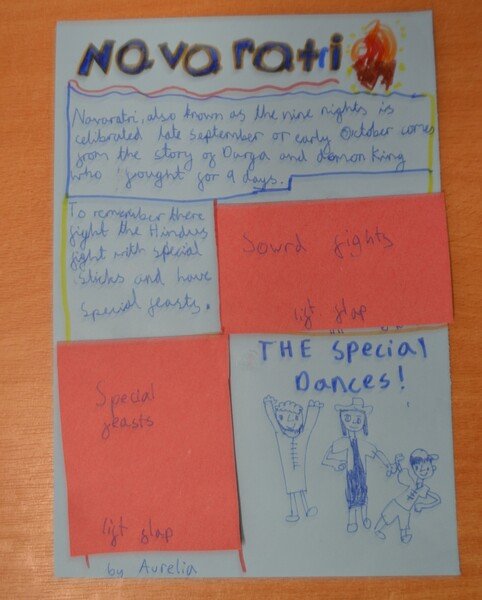 Navaratri
Navaratri, also known as the nine nights is
celibrated late september or early October comes
from the story of Darga and demon King
who fought for 9 days.
To remember there
fight the Hindus
fight with special
sticks and have
special feasts.
Sowrd fights
lift flap
THE special
Dances!
Special
feasts
lift flap
by Aurelia